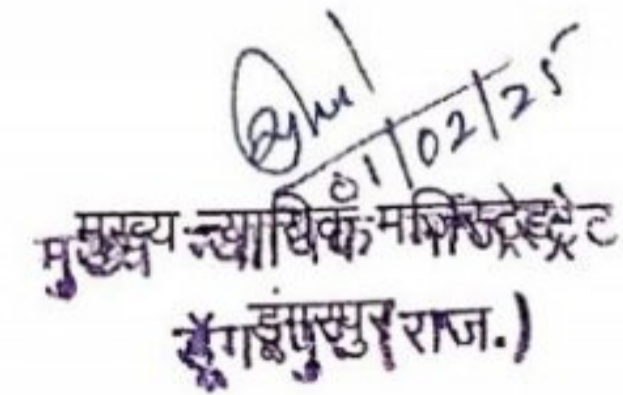 01/02/25
मुख्य न्यायिक मजिस्ट्रेट
डूंगरपुर राज.)